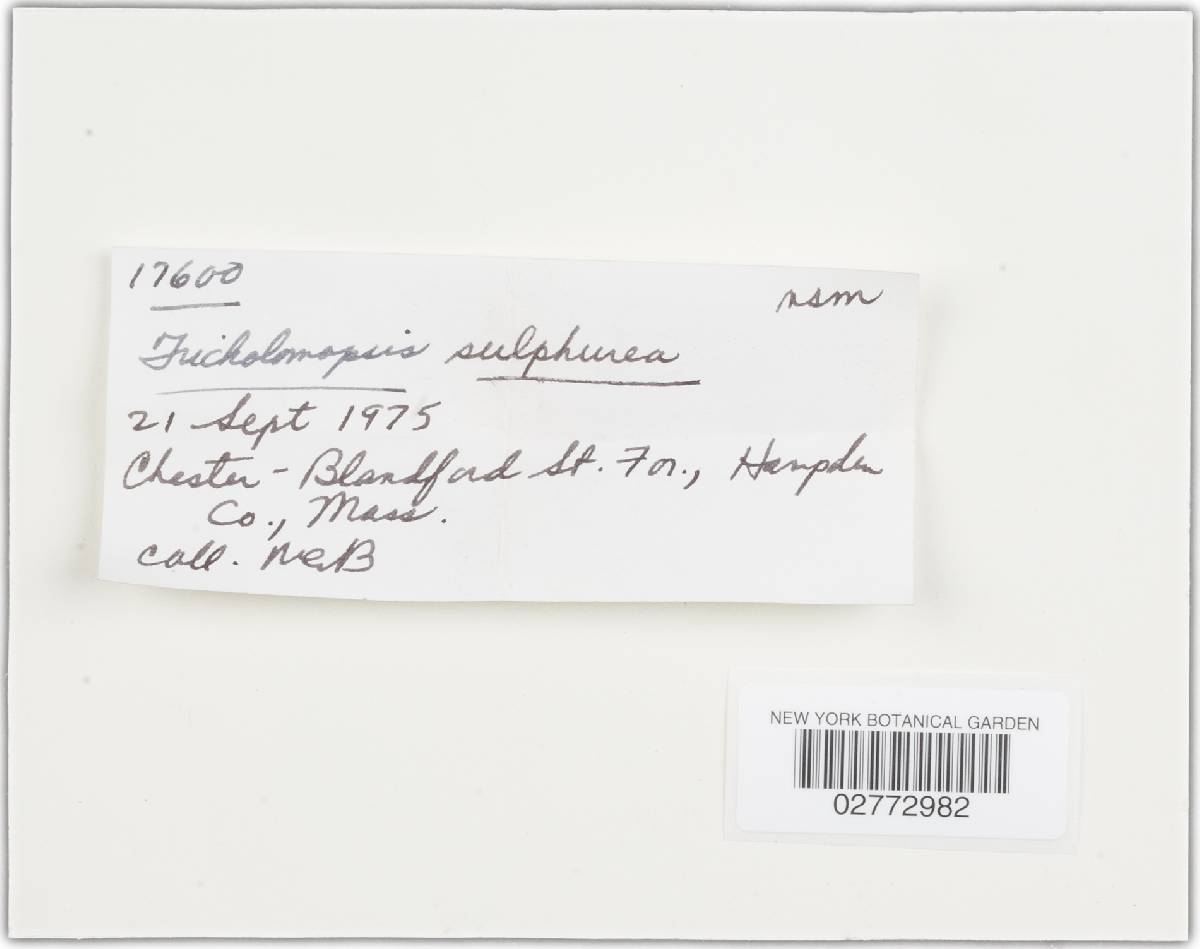 17600
nsm
Tricholomopsis sulphurea
21 Sept 1975
Chester - Blandford St. For., Hampden
Co., Mass.
coll. MEB
NEW YORK BOTANICAL GARDEN
02772982